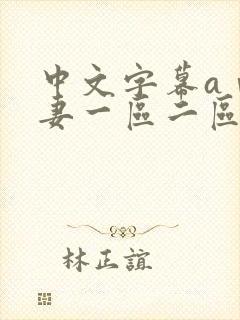 中文字幕a
妻一區二區
林正誼